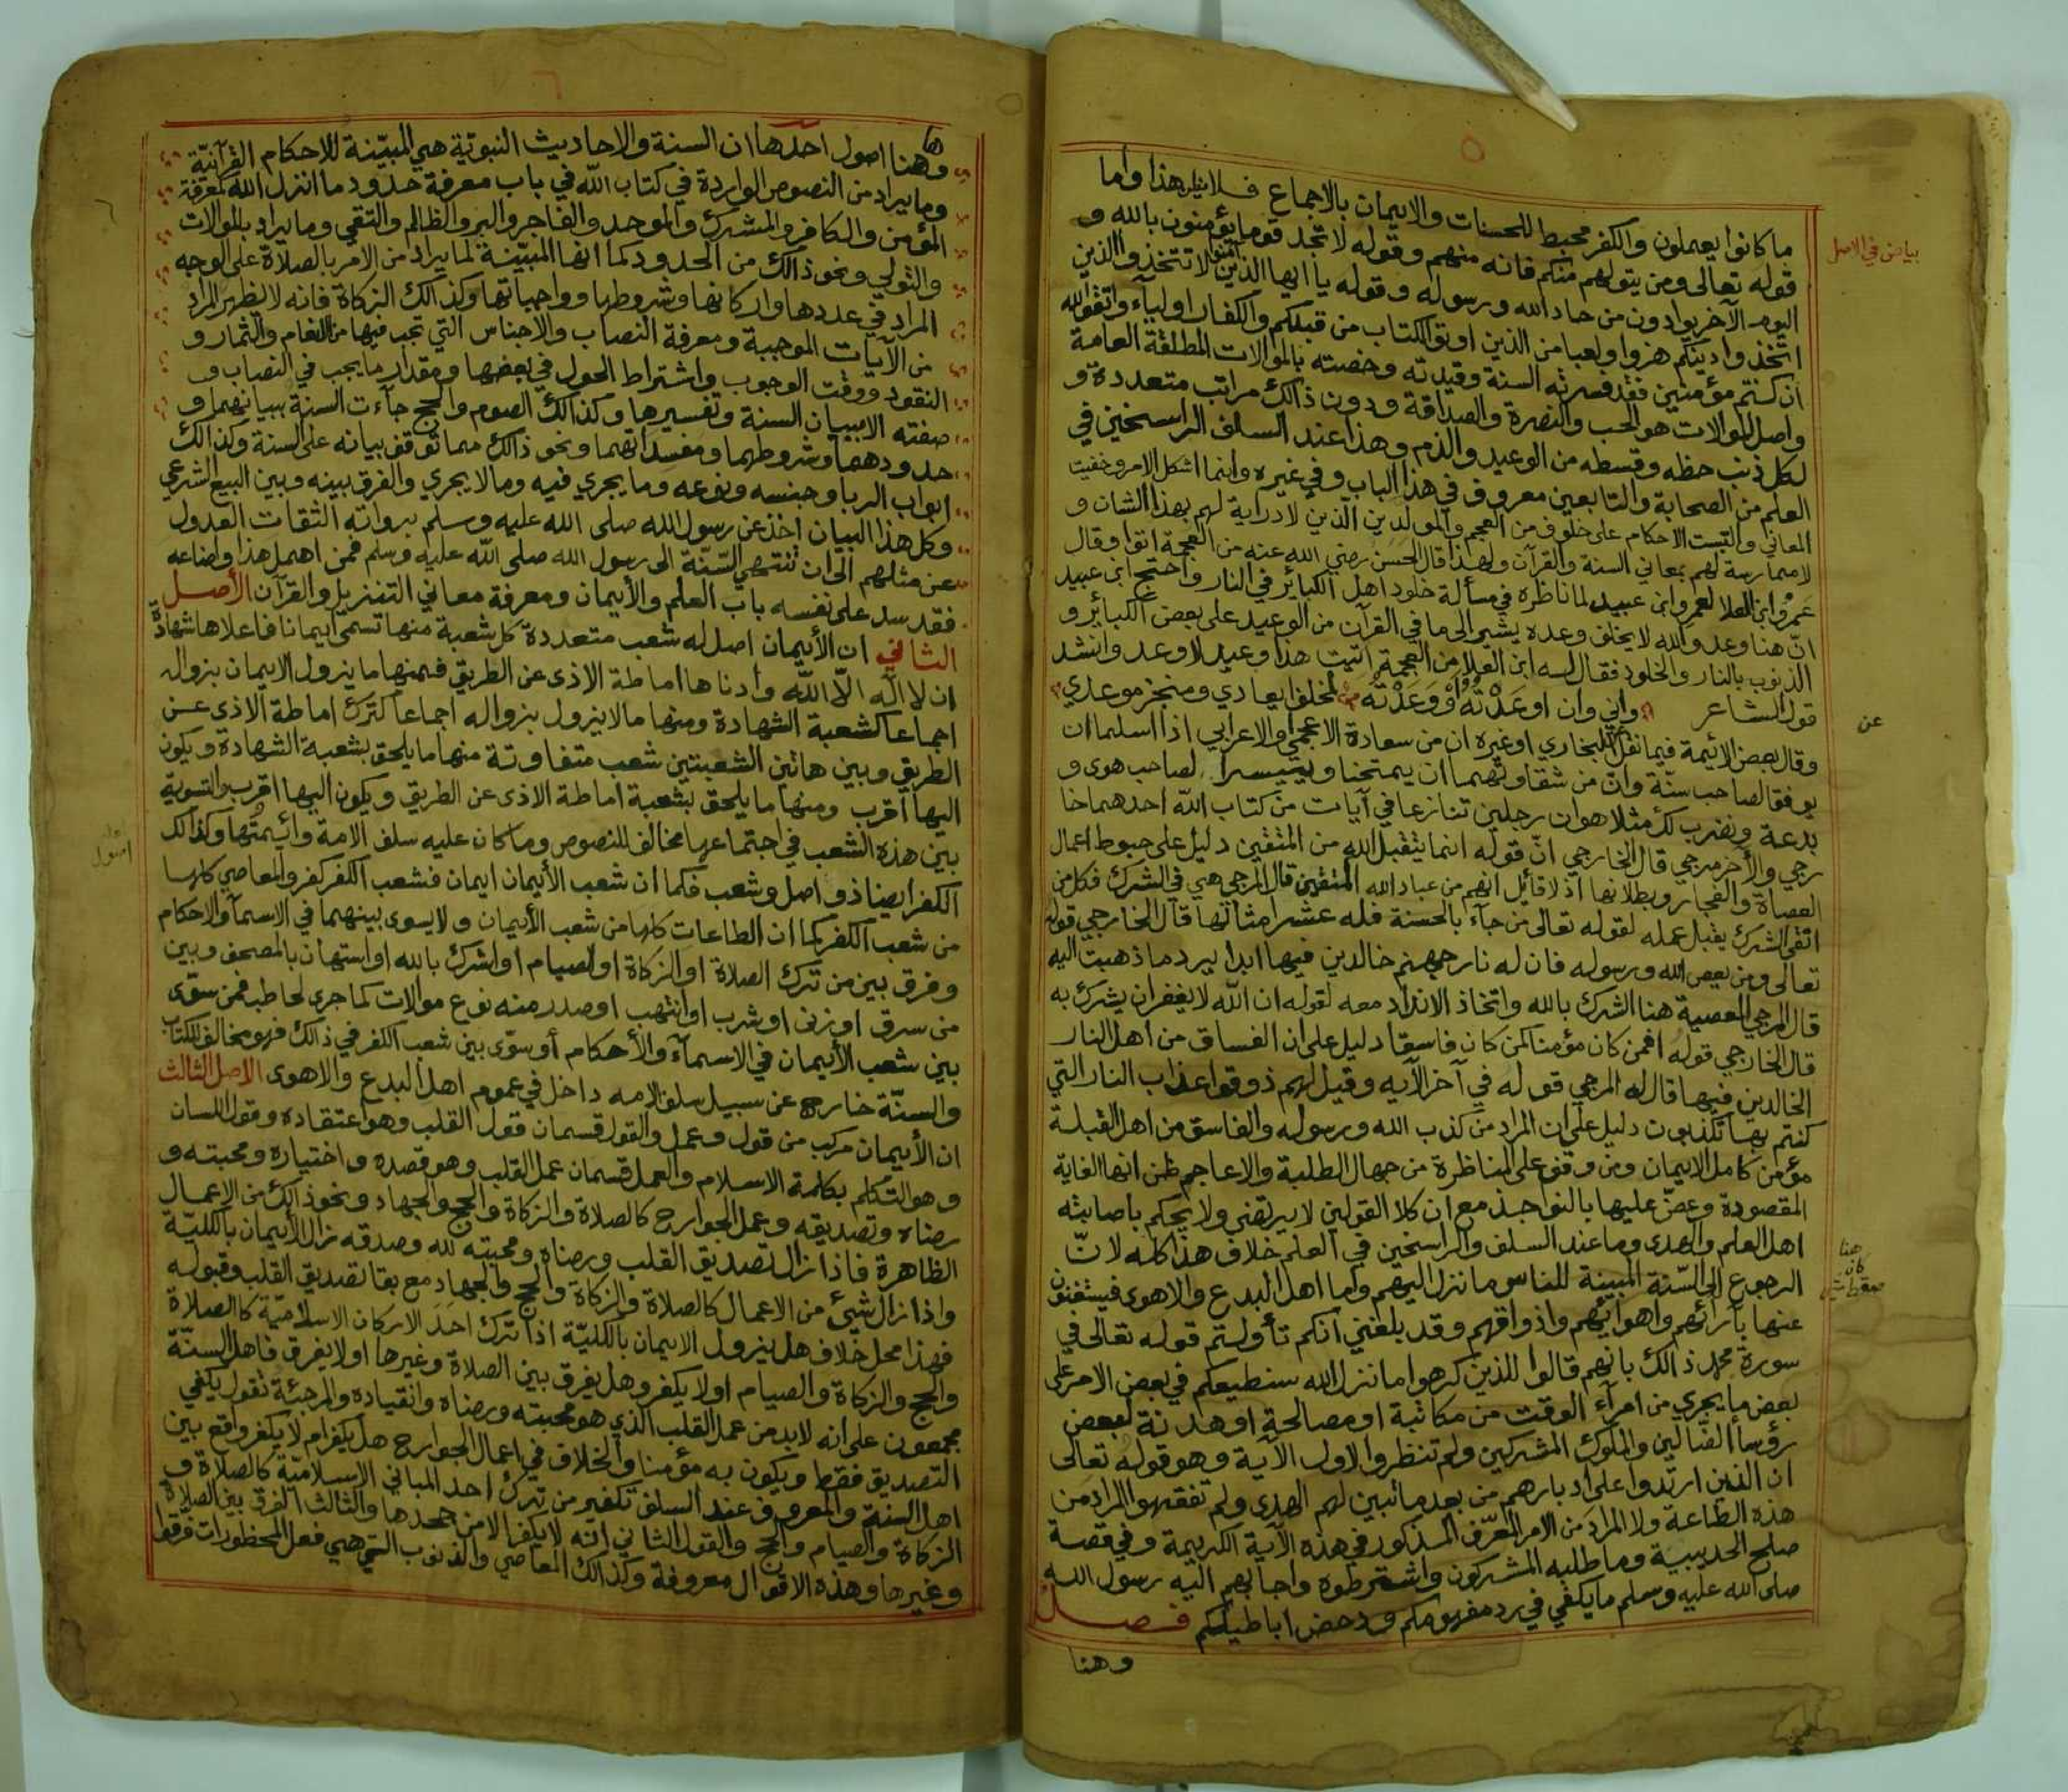 ٥
ما كانوا يعملون والكفر محبط للحسنات والايمان بالاجماع فلا هذا واما
بياض في الاصل
قوله تعالى ومن يتولهم منكم فانه منهم وقوله لا تجد قوما يؤمنون بالله و
اليوم الآخر يوادون من حاد الله ورسوله وقوله يا ايها الذين آمنوا لا تتخذوا الذين
اتخذوا دينكم هزوا ولعبا من الذين اوتوا الكتاب من قبلكم والكفار اولياء واتقوا الله
ان كنتم مؤمنين فقد فسرته السنة وقيدته وخصته بالموالات المطلقة العامة
واصل الموالات هو الحب والنصرة والصداقة ودون ذالك مراتب متعددة و
لكل ذنب حظه وقسطه من الوعيد والذم وهذا عند السلف الراسخين في
العلم من الصحابة والتابعين معروف في هذا الباب وفي غيره وانما اشكل الامر وخفيت
المعاني والتبست الاحكام على خلوف من العجم والمولدين الذين لا دراية لهم بهذا الشان و
لا ممارسة لهم بمعاني السنة والقرآن ولهذا قال الحسن رضي الله عنه من العجمة اتوا وقال
عمرو ابن العلا لعمرو ابن عبيد لما ناظره في مسألة خلود اهل الكبائر في النار واحتج ابن عبيد
انّ هنا وعد والله لا يخلف وعده يشير الى ما في القرآن من الوعيد على بعض الكبائر و
الذنوب بالنار والخلود فقال له ابن العلا من العجمة اتيت هذا وعيد لا وعد وانشد
قول الشاعر واني وان اوعدته أو وعدته لمخلف ايعادي ومنجز موعدي
عن
وقال بعض الائمة فيما نقل البخاري او غيره ان من سعادة الاعجمي والاعرابي اذا اسلما ان
يوفقا لصاحب سنة وانّ من شقاوتهما ان يمتحنا وييسرا لصاحب هوى و
بدعة ونضرب لك مثلا هو ان رجلين تنازعا في آيات من كتاب الله احدهما خا
رجي والآخر مرجي قال الخارجي انّ قوله انما يتقبل الله من المتقين دليل على حبوط اعمال
العصاة والفجار وبطلانها اذ لا قائل انهم من عباد الله المتقين قال المرجي هي في الشرك فكل من
اتقى الشرك يقبل عمله لقوله تعالى من جآء بالحسنة فله عشر امثالها قال الخارجي قوله
تعالى ومن يعص الله ورسوله فان له نار جهنم خالدين فيها ابدا يرد ما ذهبت اليه
قال المرجي المعصية هنا الشرك بالله واتخاذ الانداد معه لقوله ان الله لا يغفر ان يشرك به
قال الخارجي قوله افمن كان مؤمنا كمن كان فاسقا دليل على ان الفساق من اهل النار
الخالدين فيها قال له المرجي قوله في آخر الآيه وقيل لهم ذوقوا عذاب النار التي
كنتم بها تكذبون دليل على ان المراد من كذب الله ورسوله والفاسق من اهل القبلة
مؤمن كامل الايمان ومن وقف على المناظرة من جهال الطلبة والاعاجم ظن انها الغاية
المقصودة وعضّ عليها بالنواجذ مع ان كلا القولين لا يرتضى ولا يحكم باصابته
اهل العلم والهدى وما عند السلف والراسخين في العلم خلاف هذا كله لانّ
هنا كان
الرجوع الى السّنة المبينة للناس ما نزل اليهم واما اهل البدع والاهوى فيستغنون
عنها بآرائهم واهوائهم واذواقهم وقد بلغني انكم تأولتم قوله تعالى في
سورة محمد ذالك بانهم قالوا للذين كرهوا ما نزل الله سنطيعكم في بعض الامر على
بعض ما يجري من امرآء الوقت من مكاتبة او مصالحة او هدنة لبعض
رؤسآ الضالين والملوك المشركين ولم تنظروا لاول الآية وهو قوله تعالى
ان الذين ارتدوا على ادبارهم من بعد ما تبين لهم الهدى ولم تفقهوا المراد من
هذه الطاعة ولا المراد من الامر المعرّف المذكور في هذه الآية الكريمة وفي قصة
صلح الحديبية وما طلبه المشركون واشترطوه واجابهم اليه رسول الله
صلى الله عليه وسلم ما يكفي في رد مفهومكم ودحض اباطيلكم فصل
وهنا
٦
وههنا اصول احدها ان السنة والاحاديث النبوية هي المبيّنة للاحكام القرآنيّة
وما يراد من النصوص الواردة في كتاب الله في باب معرفة حدود ما انزل الله كمعرفة
المؤمن والكافر والمشرك والموحد والفاجر والبر والظالم والتقي وما يراد بالموالات
والتولي ونحو ذالك من الحدود كما انها المبيّنة لما يراد من الامر بالصلاة على الوجه
المراد في عددها واركانها وشروطها وواجباتها وكذالك الزكاة فانه لا يظهر المراد
من الآيات الموجبة ومعرفة النصاب والاجناس التي تجب فيها من الانعام والثمار و
النقود ووقت الوجوب واشتراط الحول في بعضها ومقدار ما يجب في النصاب و
صفته الا ببيان السنة وتفسيرها وكذالك الصوم والحج جآءت السنة ببيانهما و
حدودهما وشروطهما ومفسداتهما ونحو ذالك مما توقف بيانه على السنة وكذالك
ابواب الربا وجنسه ونوعه وما يجري فيه وما لا يجري والفرق بينه وبين البيع الشرعي
وكل هذا البيان اخذ عن رسول الله صلى الله عليه وسلم برواية الثقات العدول
عن مثلهم الى ان تنتهي السّنّة الى رسول الله صلى الله عليه وسلم فمن اهمل هذا واضاعه
فقد سد على نفسه باب العلم والأيمان ومعرفة معاني التنزيل والقرآن الأصل
الثاني ان الأيمان اصل له شعب متعددة كل شعبة منها تسمى ايمانا فاعلاها شهادة
ان لا اله الا الله وادناها اماطة الاذى عن الطريق فمنها ما يزول الايمان بزواله
اجماعا كشعبة الشهادة ومنها مالا يزول بزواله اجماعا كترك اماطة الاذى عن
الطريق وبين هاتين الشعبتين شعب متفاوتة منها ما يلحق بشعبة الشهادة ويكون
اليها أقرب ومنها ما يلحق بشعبة اماطة الاذى عن الطريق ويكون اليها اقرب والتسوية
بين هذه الشعب في اجتماعها مخالف للنصوص وما كان عليه سلف الامة وائمتها وكذالك
اصول
الكفر ايضا ذو اصل وشعب فكما ان شعب الأيمان ايمان فشعب الكفر كفر والمعاصي كلها
من شعب الكفر كما ان الطاعات كلها من شعب الأيمان ولا يسوى بينهما في الاسمآ والاحكام
وفرق بين من ترك الصلاة او الزكاة او الصيام او اشرك بالله او استهان بالمصحف وبين
من سرق او زنى او شرب او انتهب او صدر منه نوع موالات كما جرى لحاطب فمن سوّى
بين شعب الأيمان في الاسمآء والأحكام أو سوّى بين شعب الكفر في ذالك فهو مخالف للكتاب
والسنّة خارج عن سبيل سلف الامه داخل في عموم اهل البدع والاهوى الاصل الثالث
ان الأيمان مركب من قول وعمل والقول قسمان قول القلب وهو اعتقاده وقول اللسان
وهو التكلم بكلمة الاسلام والعمل قسمان عمل القلب وهو قصده واختياره ومحبته و
رضاه وتصديقه وعمل الجوارح كالصلاة والزكاة والحج والجهاد ونحو ذالك من الاعمال
الظاهرة فاذا زال تصديق القلب ورضاه ومحبته لله وصدقه زال الأيمان بالكليّة
واذا زال شيئ من الاعمال كالصلاة والزكاة والحج والجهاد مع بقا تصديق القلب وقبوله
فهذا محل خلاف هل يزول الايمان بالكليّة اذا ترك احد الاركان الاسلاميّة كالصلاة
والحج والزكاة والصيام او لا يكفر وهل يفرق بين الصلاة وغيرها او لا يفرق فاهل السنّة
مجمعون على انه لابد من عمل القلب الذي هو محبته ورضاه وانقياده والمرجئة تقول يكفي
التصديق فقط ويكون به مؤمنا والخلاف في اعمال الجوارح هل يكفر ام لا يكفر واقع بين
اهل السنة والمعروف عند السلف تكفير من ترك احد المباني الاسلاميّة كالصلاة و
الزكاة والصيام والحج والقول الثاني انه لا يكفر الا من جحدها والثالث الفرق بين الصلاة
وغيرها وهذه الاقوال معروفة وكذالك المعاصي والذنوب التي هي فعل المحظورات فرقوا